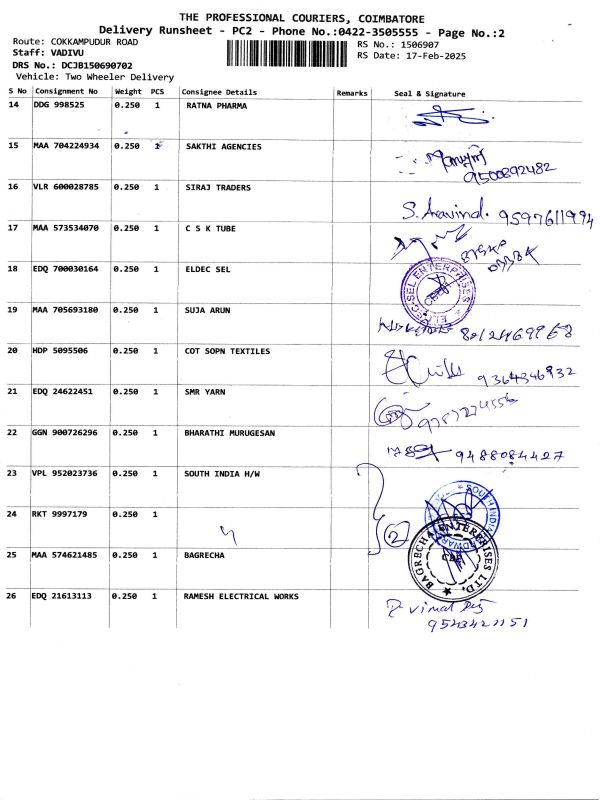 THE PROFESSIONAL COURIERS, COIMBATORE
Delivery Runsheet - PC2 - Phone No.:0422-3505555 - Page No.:2
Route: COKKAMPUDUR ROAD
RS No.: 1506907
Staff: VADIVU
RS Date: 17-Feb-2025
DRS No.: DCJB150690702
Vehicle: Two Wheeler Delivery
S No Consignment No Weight PCS Consignee Details Remarks Seal & Signature
14 DDG 998525 0.250 1 RATNA PHARMA
15 MAA 704224934 0.250 1 SAKTHI AGENCIES
9500892482
16 VLR 600028785 0.250 1 SIRAJ TRADERS
S. Aravind. 9597611994
17 MAA 573534070 0.250 1 C S K TUBE
18 EDQ 700030164 0.250 1 ELDEC SEL
19 MAA 705693180 0.250 1 SUJA ARUN
20 HDP 5095506 0.250 1 COT SOPN TEXTILES
9364346932
21 EDQ 24622451 0.250 1 SMR YARN
22 GGN 900726296 0.250 1 BHARATHI MURUGESAN
9488084427
23 VPL 952023736 0.250 1 SOUTH INDIA H/W
24 RKT 9997179 0.250 1
2
25 MAA 574621485 0.250 1 BAGRECHA
BAGRECHA ENTERPRISES LTD.
CBE
26 EDQ 21613113 0.250 1 RAMESH ELECTRICAL WORKS